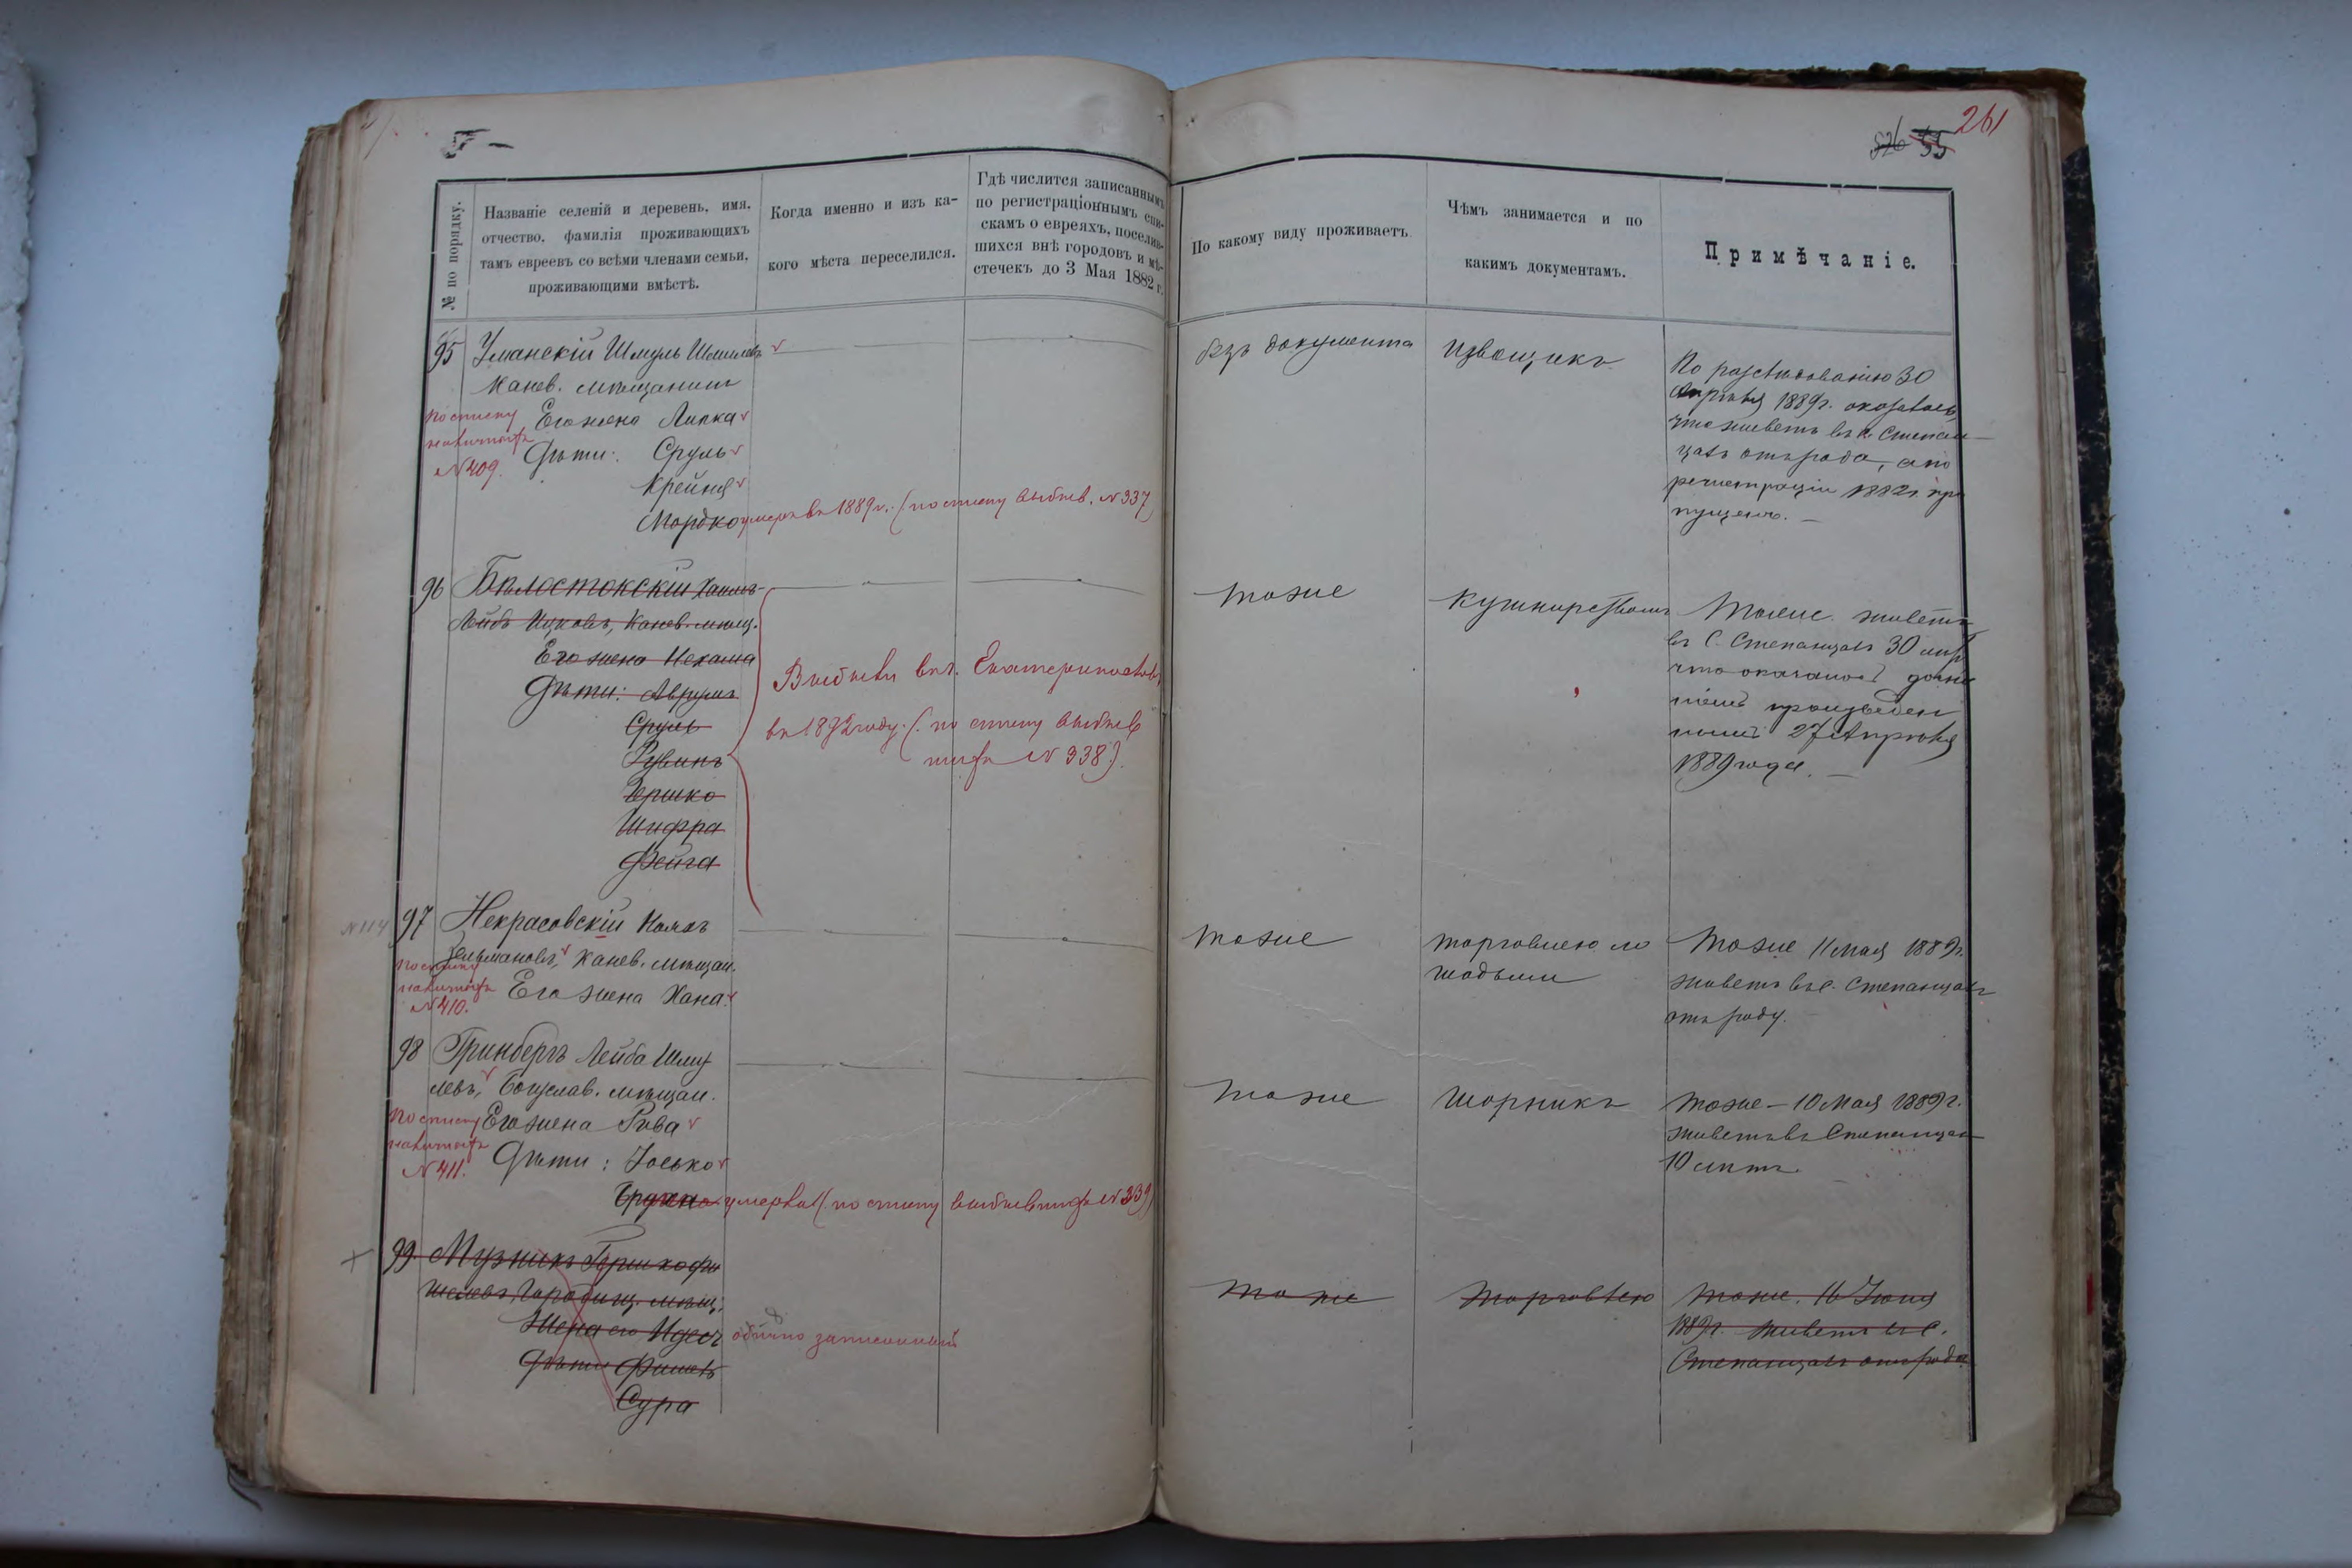 261
526 55
№ по порядку.
Названіе селеній и деревень, имя,
отчество, фамилія проживающихъ
тамъ евреевъ со всѣми членами семьи,
проживающими вмѣстѣ.
Когда именно и изъ ка-
кого мѣста переселился.
Гдѣ числится записаннымъ
по регистраціоннымъ спи-
скамъ о евреяхъ, поселив-
шихся внѣ городовъ и мѣ-
стечекъ до 3 Мая 1882 г.
По какому виду проживаетъ
Чѣмъ занимается и по
какимъ документамъ.
Примѣчаніе.
95 Уманскій Шмуль Шмилевъ
Канев. мѣщанинъ
По списку
наличныхъ
№ 409.
Его жена Липка
Дѣти: Сруль
Крейнця
Мордко умеръ въ 1889 г. (по списку выбыв. № 337)
безъ документа
извощикъ
По разслѣдованію 30
Апрѣля 1889г. оказалось,
что живетъ въ с. Степан-
цахъ отъ рода, а по
регистраціи 1882 г. про
пущенъ. —
96 Бѣлостокскій Хаимъ-
Лейбъ Ицковъ, Канев. мѣщ.
Его жена Нехама
Дѣти: Аврумъ
Сруль
Рувинъ
Гершко
Шифра
Фейга
Выбыли въ г. Екатеринославъ
въ 1892 году. (по списку выбыв
шихъ № 338.)
тоже
Кушнирствомъ
Тоже живетъ
въ С. Степанцахъ 30 лѣтъ
что оказалось дозна
ніемъ произведен
нымъ 27 Апрѣля
1889 года. —
№ 114
97 Некрасовскій
Зельмановъ, Канев. мѣщан.
По списку
наличныхъ
№ 410.
Его жена Хана
тоже
торговлею ло
шадьми
Тоже 11 мая 1889г.
живетъ въ с. Степанцахъ
отъ роду.
98 Гринбергъ Лейба Шму
левъ, Богуслав. мѣщан.
По списку
наличныхъ
№ 411.
Его жена Рива
Дѣти: Іосько
умерла (по списку выбывшихъ № 339)
тоже
шорникъ
тоже — 10 Мая 1889г.
живетъ въ Степанцах
10 лѣтъ.
99. Музникъ Гершко Фи
шелевъ, Городищ. мѣщ.
Жена его Идесъ
дѣти Фишель
Сура
записанный
тоже
торговлею
тоже. 16 Іюня
1889г. живетъ въ с.
Степанцахъ отъ рода